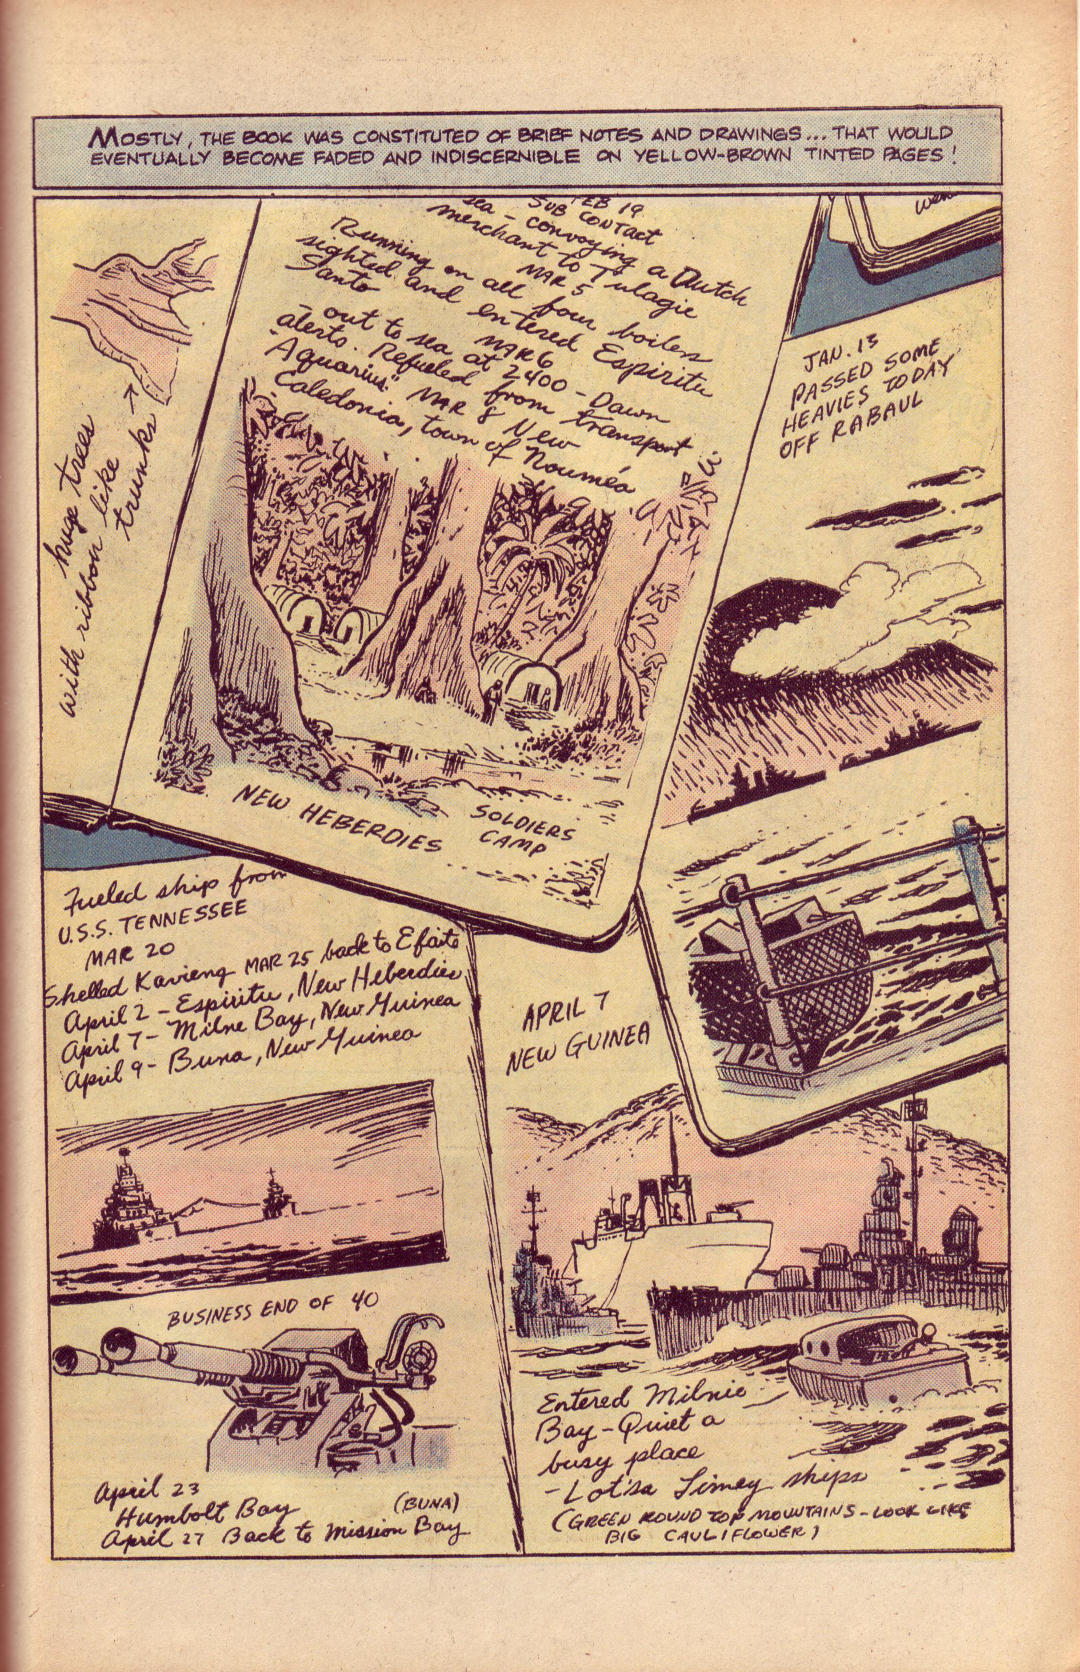 MOSTLY, THE BOOK WAS CONSTITUTED OF BRIEF NOTES AND DRAWINGS... THAT WOULD
EVENTUALLY BECOME FADED AND INDISCERNIBLE ON YELLOW-BROWN TINTED PAGES!
huge trees
with ribbon like
trunks →
FEB 19
SUB CONTACT
sea - convoying a Dutch
merchant to Tulagie
MAR 5
Running on all four boilers
sighted and entered Espiritu
Santo
MAR 6
- out to sea at 2400 - Dawn
alerts. Refueled from transport
"Aquarius." MAR 8 New
Caledonia, town of Nouméa
NEW HEBERDIES
SOLDIERS
CAMP
JAN. 13
PASSED SOME
HEAVIES TODAY
OFF RABAUL
Fueled ship from
U.S.S. TENNESSEE
MAR 20
Shelled Kavieng MAR 25 back to Efaito
April 2 - Espiritu, New Heberdies
April 7 - Milne Bay, New Guinea
April 9 - Buna, New Guinea
BUSINESS END OF 40
April 23
Humbolt Bay (BUNA)
April 27 Back to Mission Bay
APRIL 7
NEW GUINEA
Entered Milnie
Bay - Quiet a
busy place
- Lot'sa Limey ships
(GREEN ROUND TOP MOUNTAINS - LOOK LIKE
BIG CAULIFLOWER)